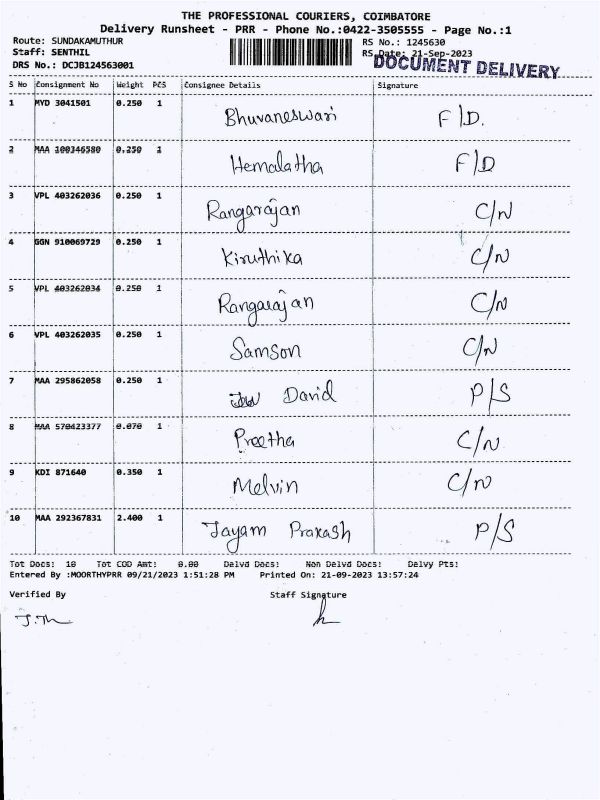 THE PROFESSIONAL COURIERS, COIMBATORE
Delivery Runsheet - PRR - Phone No.:0422-3505555 - Page No.:1
Route: SUNDAKAMUTHUR RS No.: 1245630
Staff: SENTHIL RS Date: 21-Sep-2023
DRS No.: DCJB124563001 DOCUMENT DELIVERY
S No Consignment No Weight PCS Consignee Details Signature
1 MYD 3041501 0.250 1 Bhuvaneswari F/D.
2 MAA 100346580 0.250 1 Hemalatha F/D
3 VPL 403262036 0.250 1 Rangarajan C/N
4 GGN 910069729 0.250 1 Kiruthika C/N
5 VPL 403262034 0.250 1 Rangarajan C/N
6 VPL 403262035 0.250 1 Samson C/N
7 MAA 295862058 0.250 1 David P/S
8 MAA 570423377 0.070 1 Preetha C/N
9 KDI 871640 0.350 1 Melvin C/N
10 MAA 292367831 2.400 1 Jayam Prakash P/S
Tot Docs: 10 Tot COD Amt: 0.00 Delvd Docs: Non Delvd Docs: Delvy Pts:
Entered By :MOORTHYPRR 09/21/2023 1:51:28 PM Printed On: 21-09-2023 13:57:24
Verified By Staff Signature